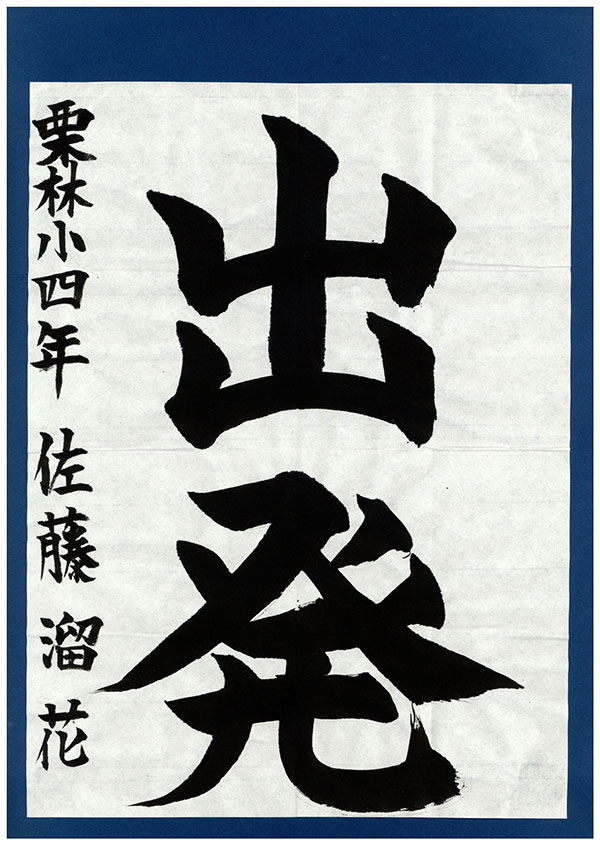 出発
栗林小四年 佐藤溜花